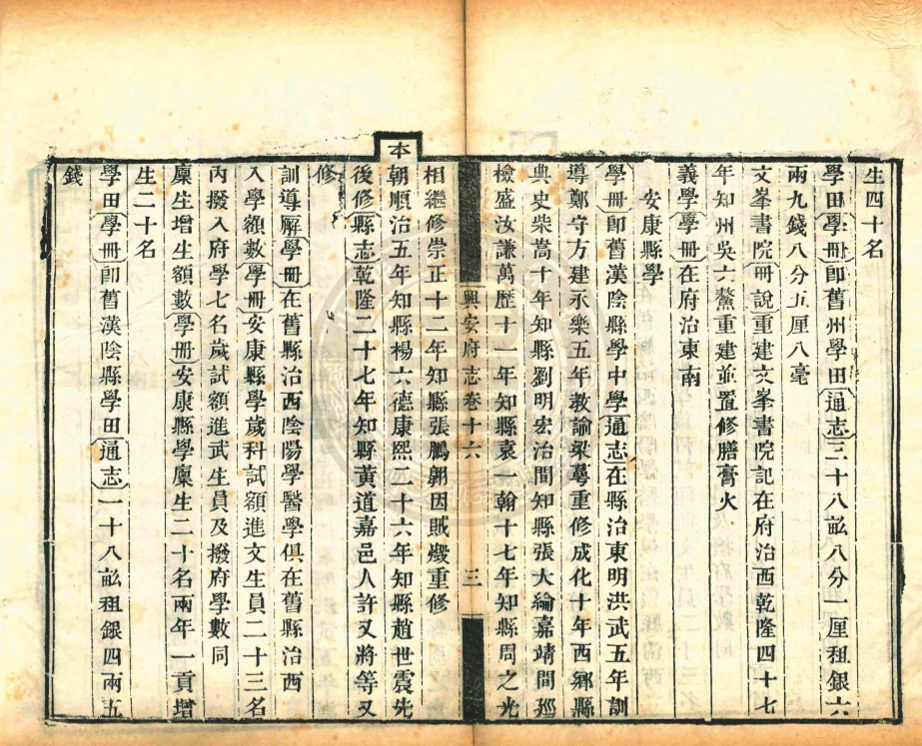 生四十名
學田學冊卽舊州學田通志三十八畝八分一厘租銀六
兩九錢八分五厘八毫
文峯書院冊說重建文峯書院記在府治西乾隆四十七
年知州吳六鰲重建並置修膳膏火
義學學冊在府治東南
安康縣學
學冊卽舊漢陰縣學中學通志在縣治東明洪武五年訓
導鄭守方建永樂五年教諭梁蕚重修成化十年西鄉縣
典史柴嵩十年知縣劉明宏治間知縣張大綸嘉靖間廵
檢盛汝謙萬歷十一年知縣袁一翰十七年知縣周之光
興安府志卷十六
三
相繼修崇正十二年知縣張鵬翱因賊燬重修
本
朝順治五年知縣楊六德康熙二十六年知縣趙世震先
後修縣志乾隆二十七年知縣黃道嘉邑人許又將等又
修
訓導廨學冊在舊縣治西陰陽學醫學俱在舊縣治西
入學額數學冊安康縣學歲科試額進文生員二十三名
內撥入府學七名歲試額進武生員及撥府學數同
廩生增生額數學冊安康縣學廩生二十名兩年一貢增
生二十名
學田學冊卽舊漢陰縣學田通志一十八畝租銀四兩五
錢